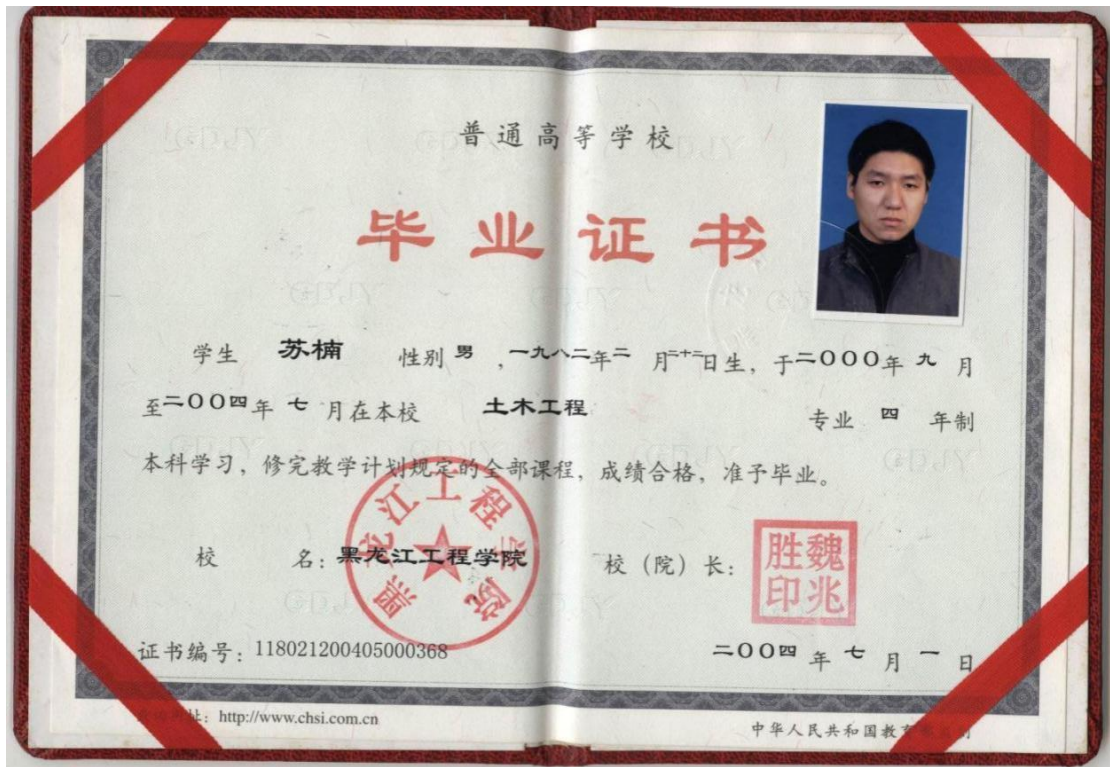 普通高等学校
毕业证书
学生 苏楠 性别 男 ，一九八二年二 月二十二日生，于二〇〇〇年 九 月
至二〇〇四年 七 月在本校 土木工程 专业 四 年制
本科学习，修完教学计划规定的全部课程，成绩合格，准予毕业。
校 名：黑龙江工程学院 校（院）长：
黑龙江工程学院
魏兆胜印
证书编号：118021200405000368 二〇〇四 年 七 月 一 日
址：http://www.chsi.com.cn
中华人民共和国教育